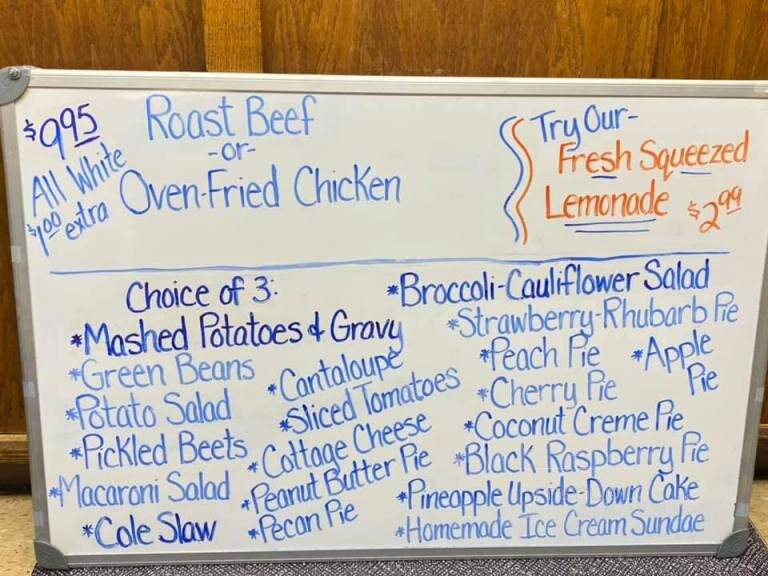 $9.95
All White
$1.00 extra
Roast Beef
-or-
Oven-Fried Chicken
Try Our-
Fresh Squeezed
Lemonade $2.99
Choice of 3:
*Mashed Potatoes & Gravy
*Green Beans
*Potato Salad
*Pickled Beets
*Macaroni Salad
*Cole Slaw
*Cantaloupe
*Sliced Tomatoes
*Cottage Cheese
*Peanut Butter Pie
*Pecan Pie
*Broccoli-Cauliflower Salad
*Strawberry-Rhubarb Pie
*Peach Pie *Apple Pie
*Cherry Pie
*Coconut Creme Pie
*Black Raspberry Pie
*Pineapple Upside-Down Cake
*Homemade Ice Cream Sundae